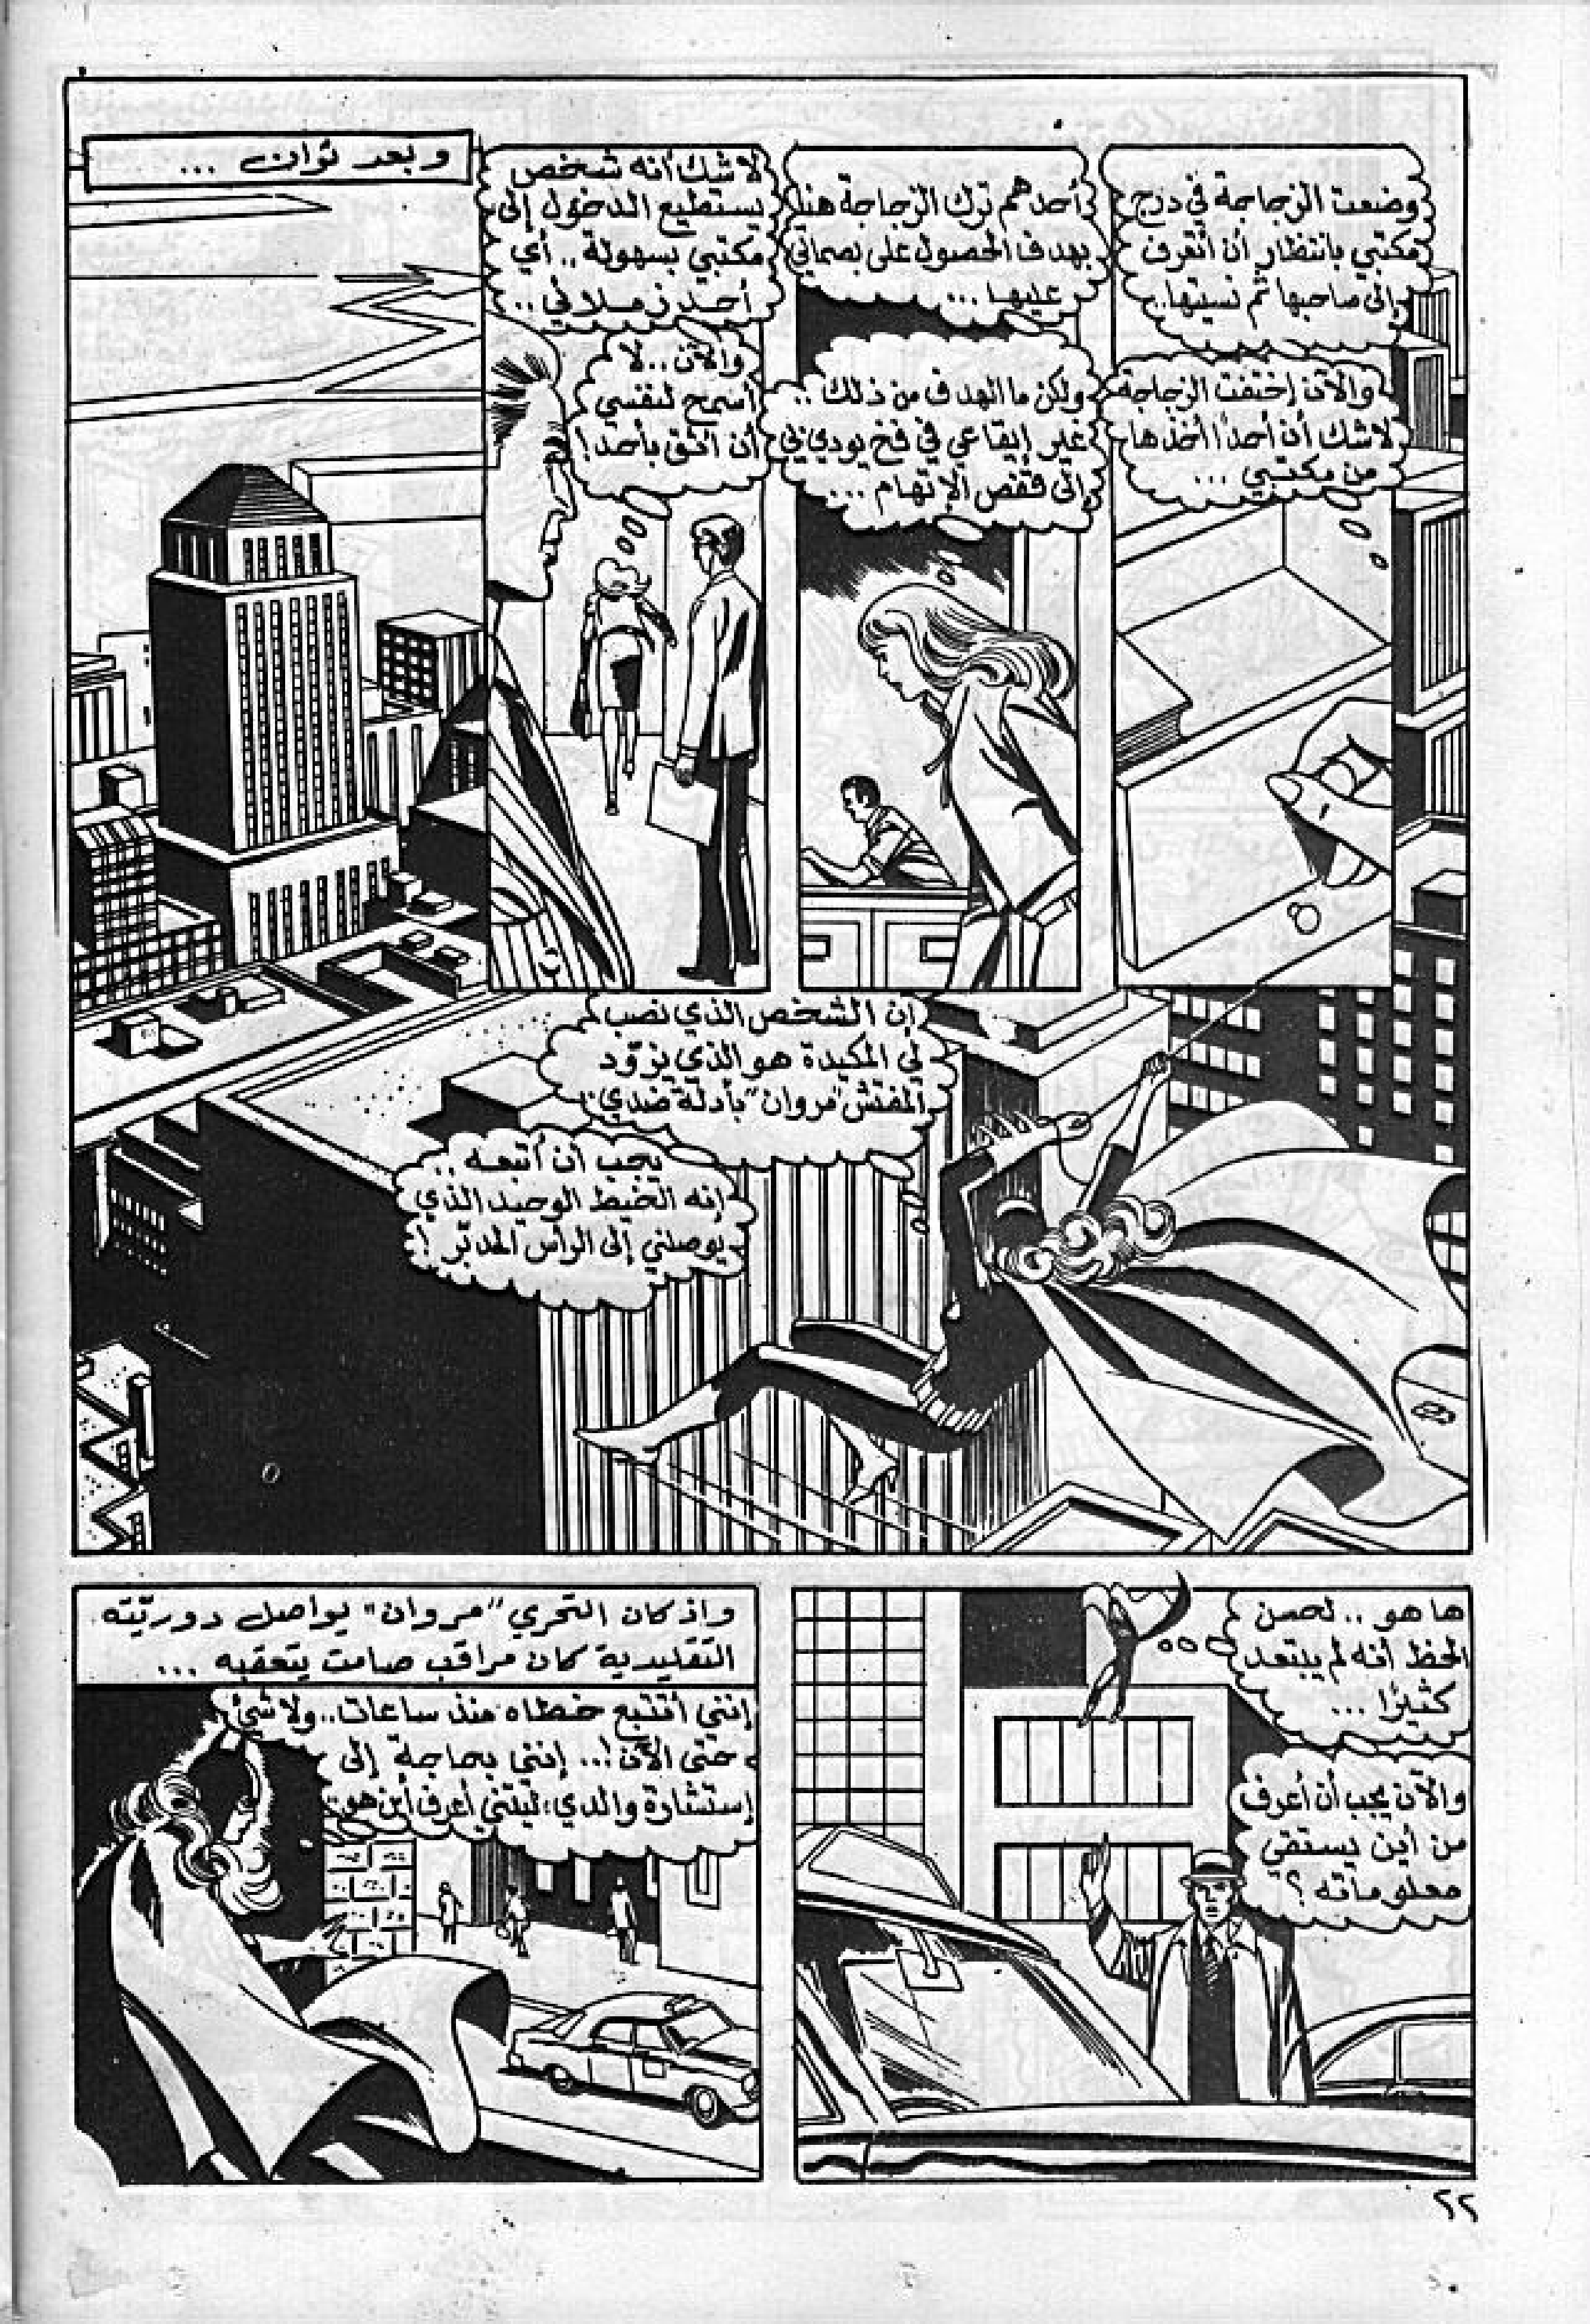 وضعت الزجاجة في درج
مكتبي بانتظار أن أتعرف
إلى صاحبها ثم نسيتها..
والآن إختفت الزجاجة
لاشك أن أحداً أخذها
من مكتبي ...
أحدهم ترك الزجاجة هنا
بهدف الحصول على بصماتي
عليها ...
ولكن ما الهدف من ذلك ..
غير إيقاعي في فخ يودي بي
إلى قفص الإتهام ...
لاشك أنه شخص
يستطيع الدخول إلى
مكتبي بسهولة .. أي
أحد زملائي ..
والآن .. لا
أسمح لنفسي
أن أثق بأحد !
وبعد ثوان ...
إن الشخص الذي نصب
لي المكيدة هو الذي يزوّد
المفتش "مروان" بأدلة ضدي
يجب أن أتبعه ..
إنه الخيط الوحيد الذي
يوصلني إلى الرأس المدبّر !
ها هو .. لحسن
الحظ أنه لم يبتعد
كثيرًا ...
والآن يجب أن أعرف
من أين يستقي
معلوماته ؟
واذ كان التحري "مروان" يواصل دوريّته
التقليدية كان مراقب صامت يتعقبه ...
إنني أتتبع خطاه منذ ساعات .. ولا شئ
حتى الآن !.. إنني بحاجة إلى
إستشارة والدي، ليتني أعرف أين هو
٢٢